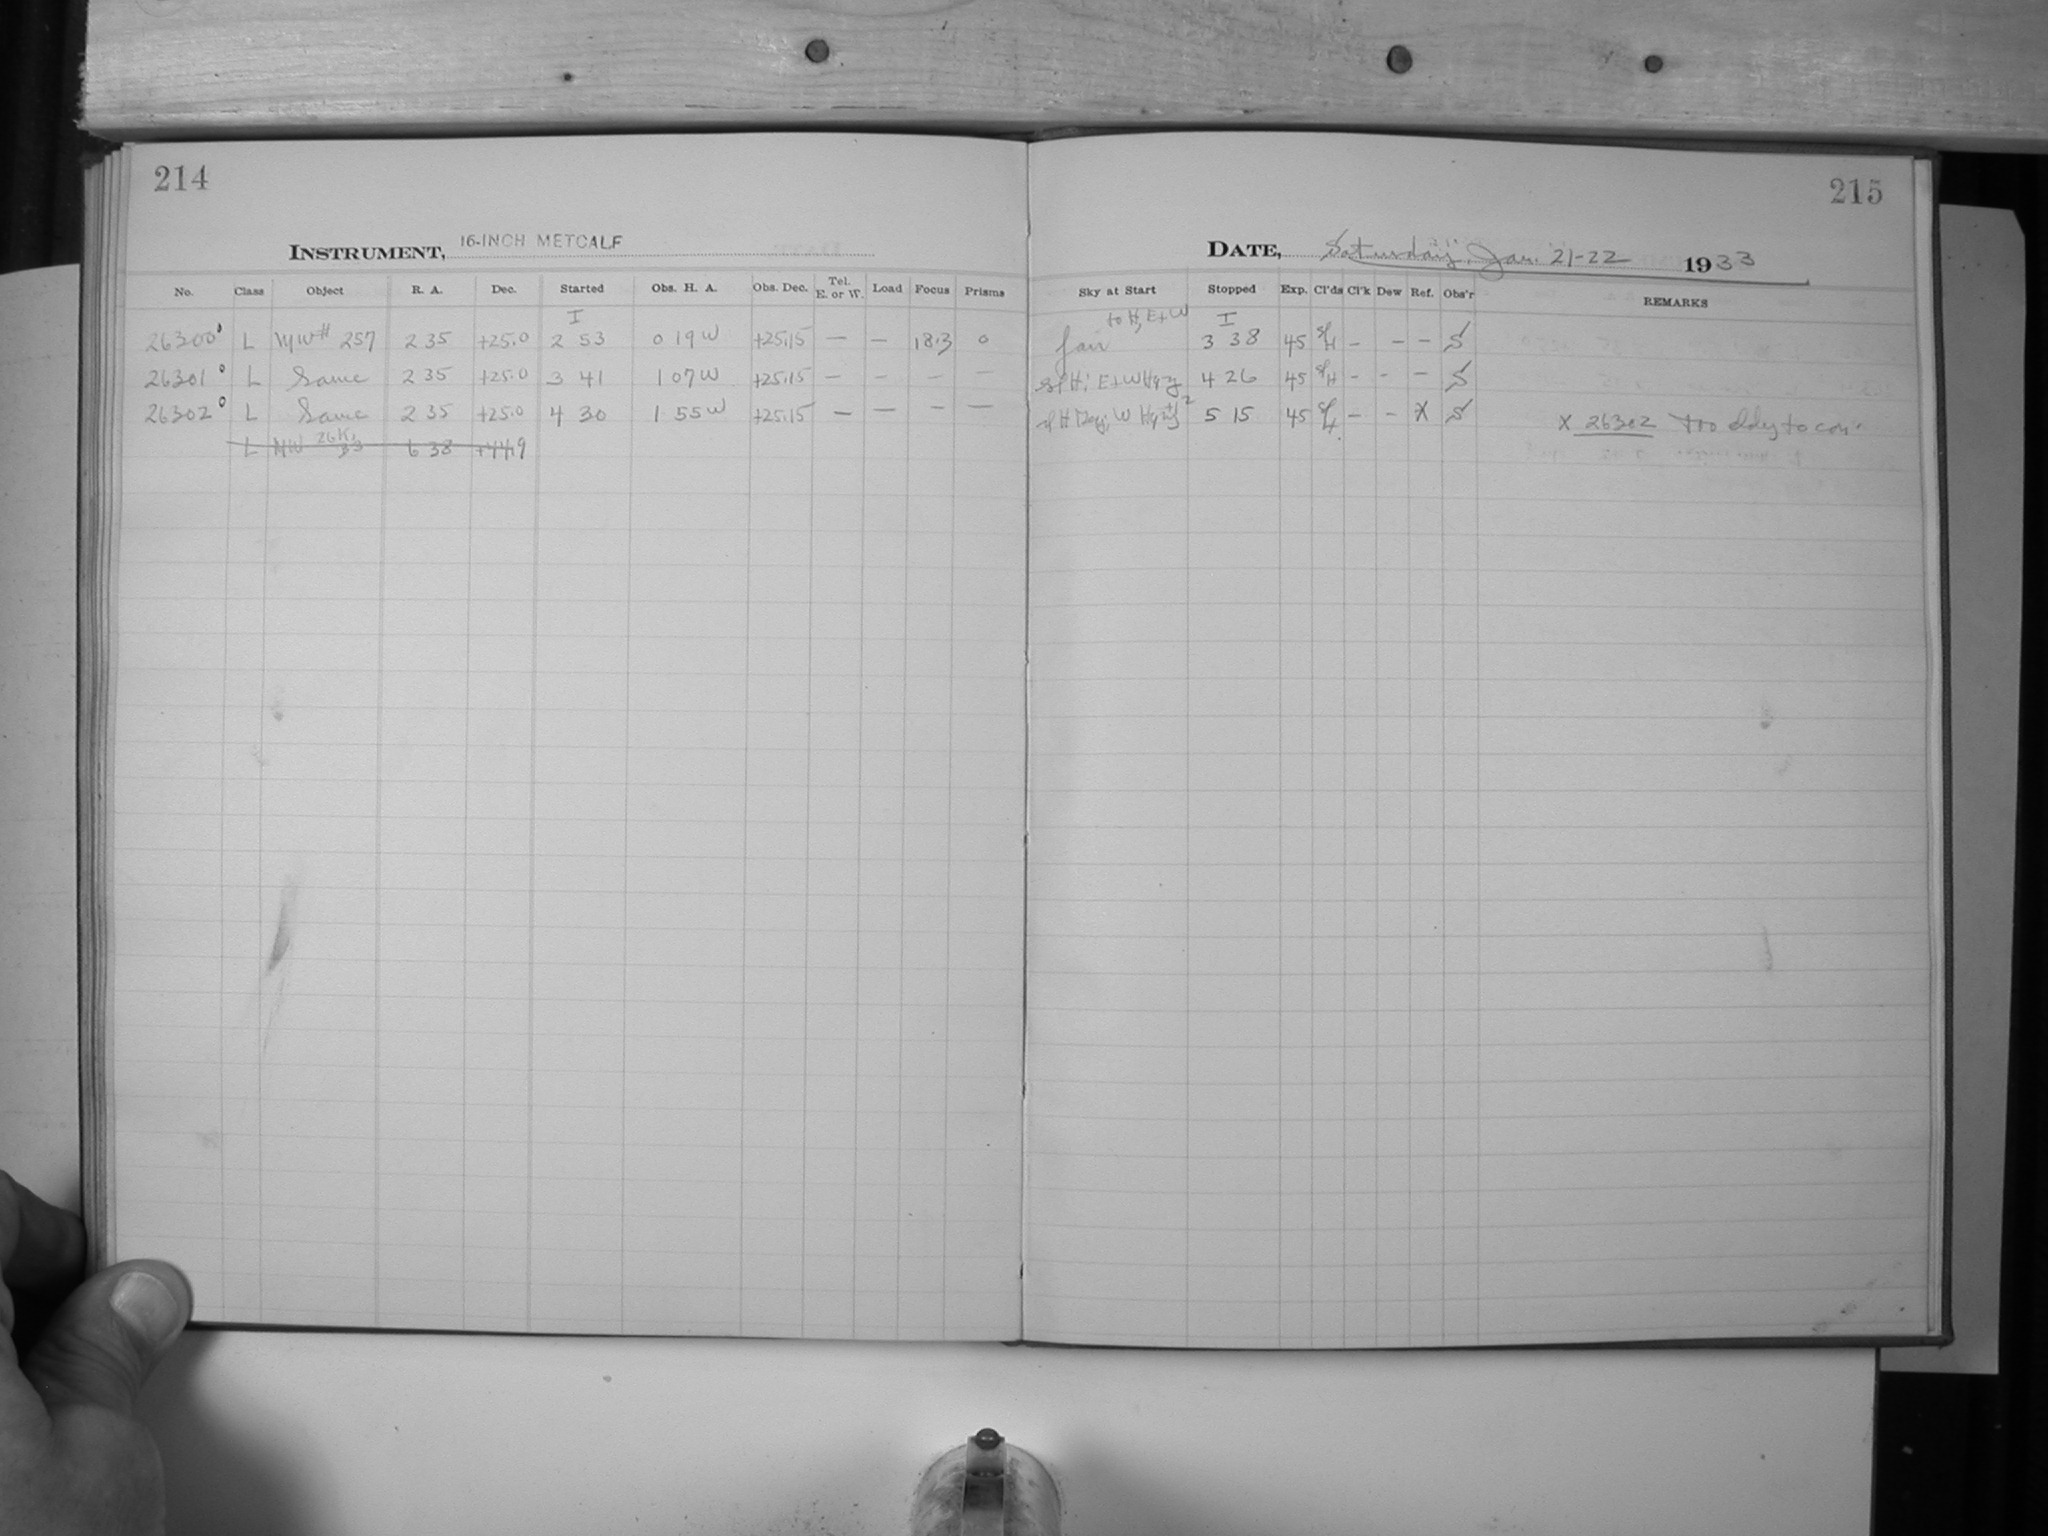 214
215
INSTRUMENT, 16-INCH METCALF
DATE, Saturday, Jan. 21-22 1933
No. Class Object R. A. Dec. Started Obs. H. A. Obs. Dec. Tel. E. or W. Load Focus Prisms Sky at Start Stopped Exp. Cl'ds Cl'k Dew Ref. Obs'r REMARKS
I to H, E+W I
26300 L MW# 257 2 35 +25.0 2 53 0 19 W +25.15 — — 18.3 0 fair 3 38 45 - - - S
26301 L Same 2 35 +25.0 3 41 1 07 W +25.15 — — — — E+W 4 26 45 - - - S
26302 L Same 2 35 +25.0 4 30 1 55 W +25.15 — — — — W 5 15 45 - - X S X 26302 to
L MW 6 38 +44.9